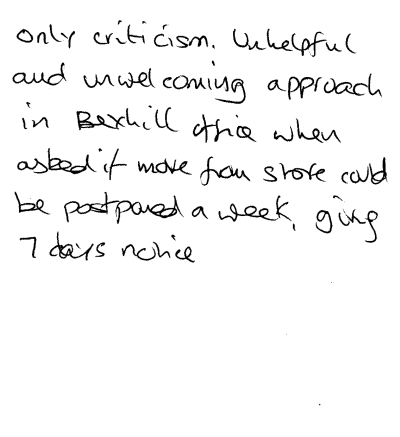 only criticism. Unhelpful
and unwelcoming approach
in Bexhill office when
asked if move from store could
be postponed a week, giving
7 days notice